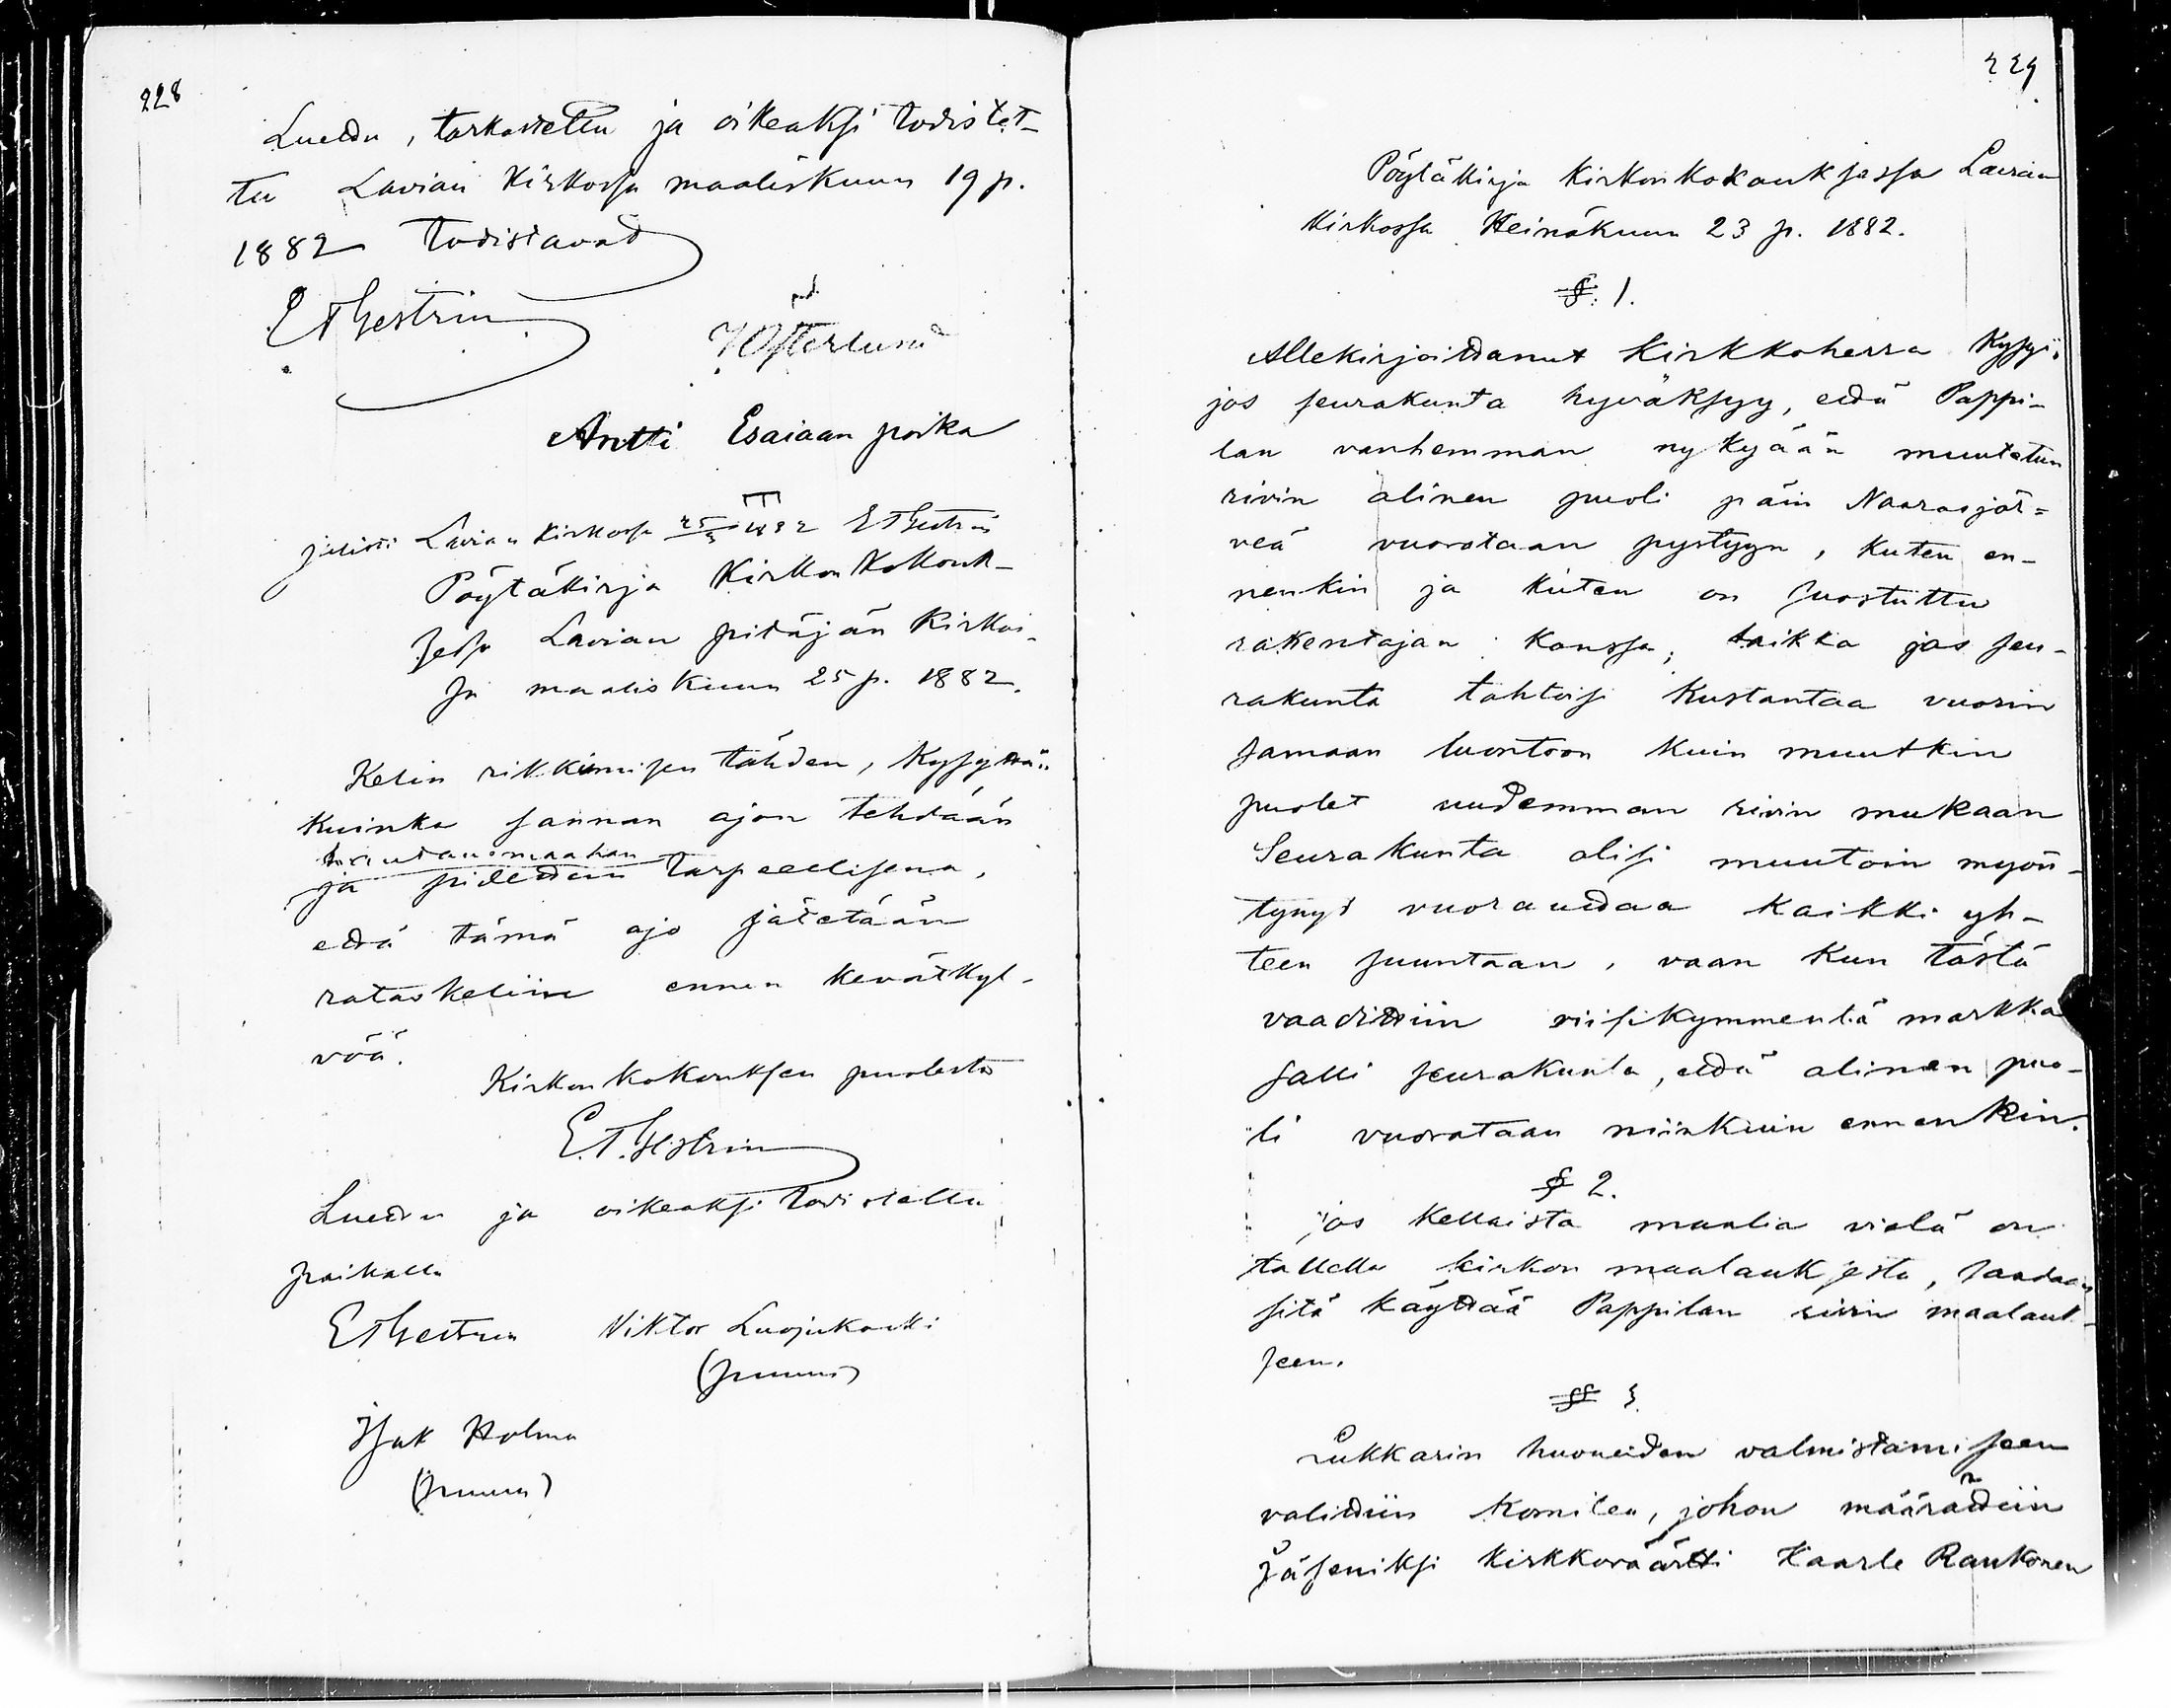 228
Luettu, tarkastettu ja oikeaksi todistet-
tu Lavian Kirkossa maaliskuun 19 p.
1882 todistavat
E A Gestrin
J Österlund
Antti Esaiaan poika
Lavian Kirkossa 25/3 1882 E A Gestrin
Pöytäkirja Kirkon Kokouk-
sessa Lavian pitäjän Kirkos-
sa maaliskuun 25 p. 1882.
Kelin rikkimisen tähden, kysyttiin
kuinka sannan ajon tehdään
hautausmaahan
ja pidettiin tarpeellisena,
että tämä ajo jätetään
rataskeliin ennen kevätkyl-
vöä.
Kirkonkokouksen puolesta
E. A. Gestrin
Luettu ja oikeaksi todistettu
paikalla
E A Gestrin Viktor Luojukoski
(puumerkki)
Isak Holma
229
Pöytäkirja Kirkonkokouksessa Lavian
Kirkossa Heinäkuun 23 p. 1882.
§. 1.
Allekirjoittanut Kirkkoherra kysyi,
jos seurakunta hyväksyy, että Pappi-
lan vanhemman nykyään muutetun
rivin alinen puoli päin Naarasjär=
veä vuorataan pystyyn, kuten en-
nenkin ja kuten on suostuttu
rakentajan kanssa, taikka jos seu-
rakunta tahtoisi kustantaa vuorin
samaan luontoon kuin muutkin
puolet uudemman rivin mukaan
Seurakunta olisi muutoin myön-
tynyt vuorauttaa kaikki yh-
teen suuntaan, vaan kun tästä
vaadittiin viisikymmentä markkaa
salli seurakunta, että alinen puo-
li vuorataan niinkuin ennenkin.
§ 2.
jos keltaista maalia vielä on
tallella kirkon maalauksesta, saadaan
sitä käyttää Pappilan rivin maalauk-
seen.
§ 3.
Lukkarin huoneiden valmistamiseen
valittiin komitea, johon määrättiin
Jäseniksi Kirkkoväärtti Kaarle Raukonen